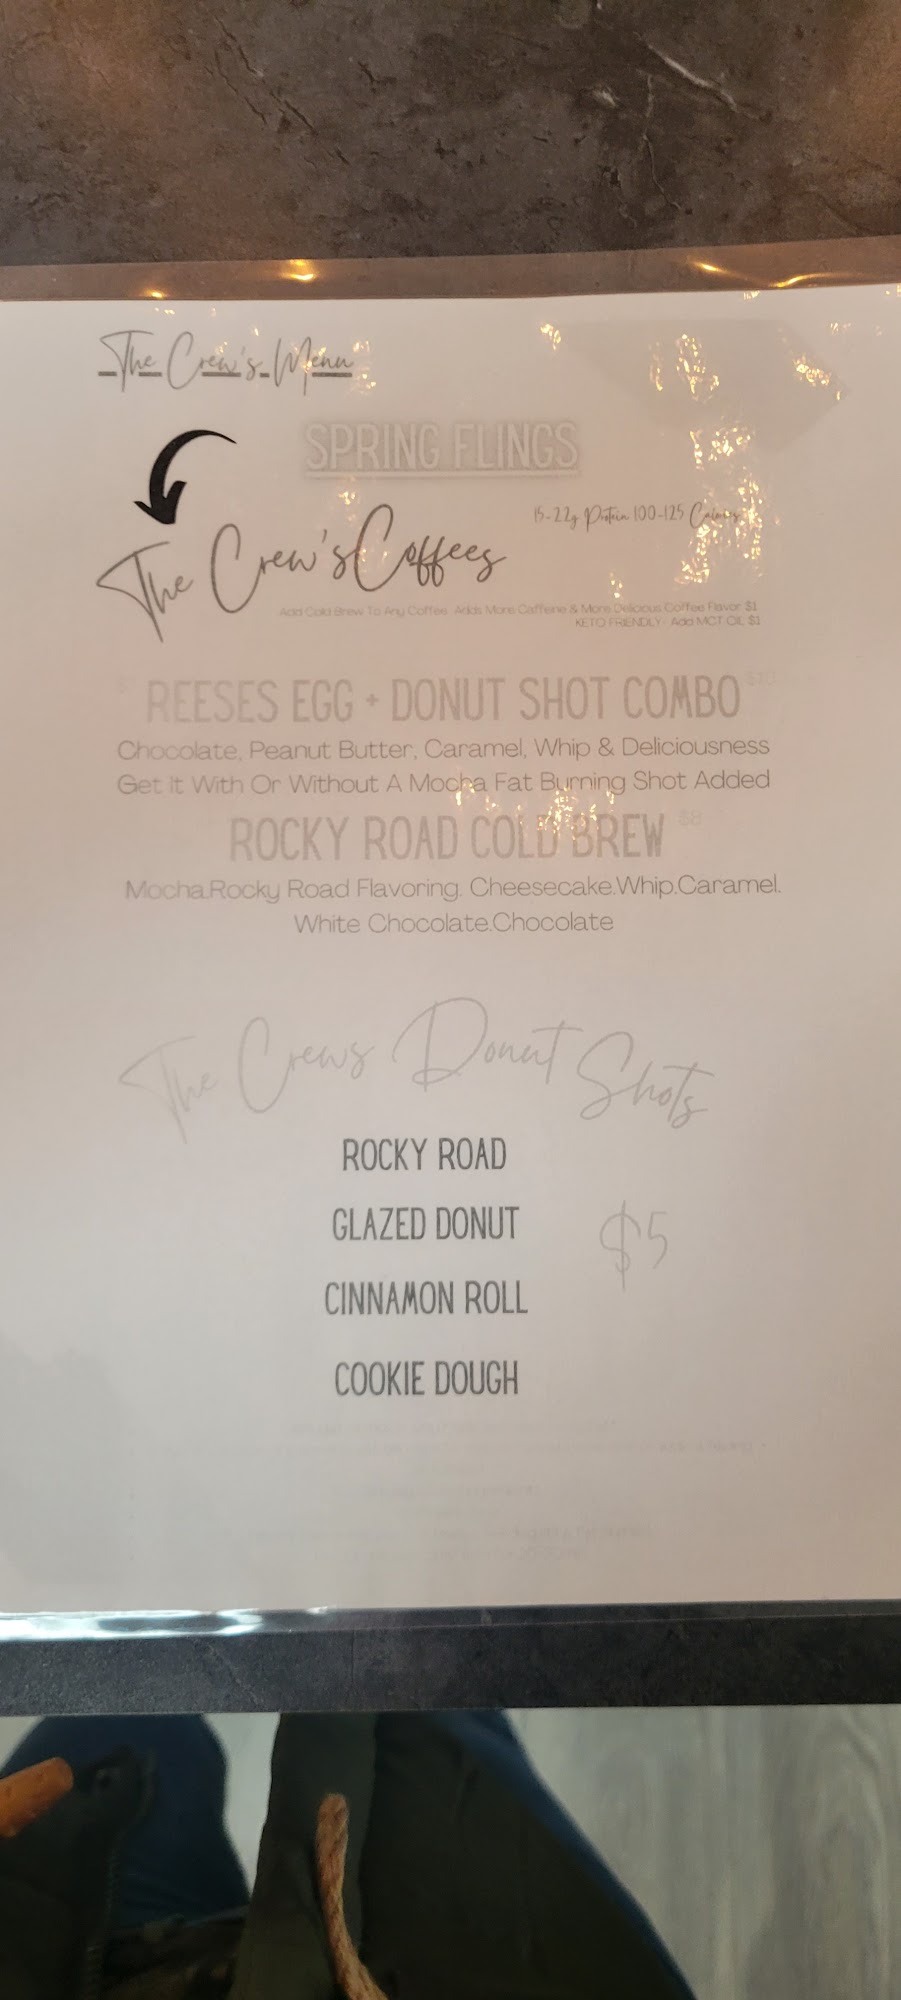 The Crew's Menu
SPRING FLINGS
15-22g Protein 100-125 Calories
The Crew's Coffees
Add Cold Brew To Any Coffee Adds More Caffeine & More Delicious Coffee Flavor $1
KETO FRIENDLY- Add MCT OIL $1
REESES EGG + DONUT SHOT COMBO
Chocolate, Peanut Butter, Caramel, Whip & Deliciousness
Get It With Or Without A Mocha Fat Burning Shot Added
ROCKY ROAD COLD BREW $8
Mocha.Rocky Road Flavoring. Cheesecake.Whip.Caramel.
White Chocolate.Chocolate
The Crews Donut Shots
ROCKY ROAD
GLAZED DONUT
$5
CINNAMON ROLL
COOKIE DOUGH